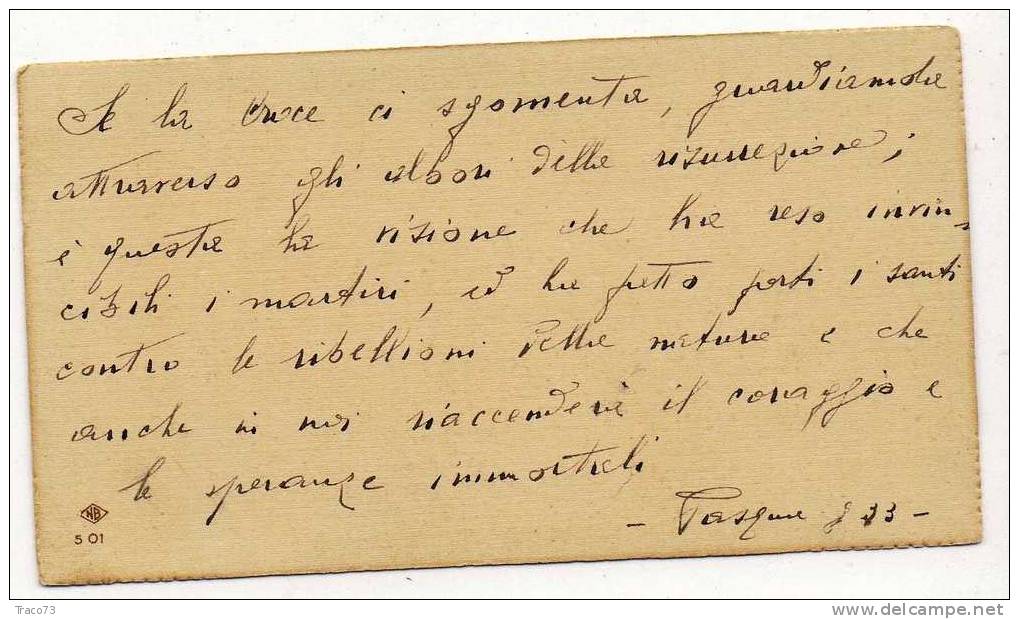 Se la Croce ci sgomenta, guardiamola
attraverso gli albori della risurrezione;
è questa la visione che ha reso invin-
cibili i martiri, ed ha fatto forti i santi
contro le ribellioni della natura e che
anche in noi riaccenderà il coraggio e
le speranze immortali
- Pasqua 933 -
NB
S 01
Traco73
delcampe.net